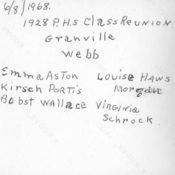 6/8/1968.
1928 P.H.S Class Reunion
Granville
Webb
Emma Aston Louise Haws
Kirsch Portis
Bobst Wallace Virginia
Schrock.